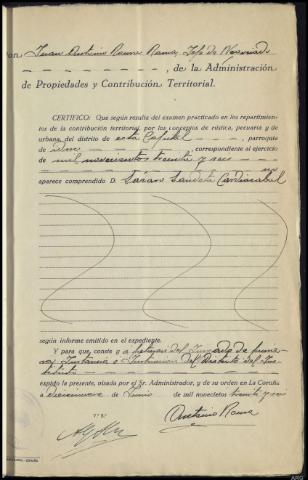 Don Juan Antonio Rama Rama, Jefe de Negociado
, de la Administración
de Propiedades y Contribución Territorial.
CERTIFICO: Que según resulta del examen practicado en los repartimien-
tos de la contribución territorial, por los conceptos de rústica, pecuaria y de
urbana, del distrito de esta Capital, parroquia
de idem correspondiente al ejercicio
de mil novecientos treinta y seis
no
aparece comprendido D.
según informe emitido en el expediente.
Y para que conste a petición del Juzgado de prime-
ra Instancia e Instrucción del Distrito del Ins-
tituto
expido la presente, visada por el Sr. Administrador, y de su orden en La Coruña
a diecinueve de Junio de mil novecientos treinta y seis
Antonio Rama
V.º B.º